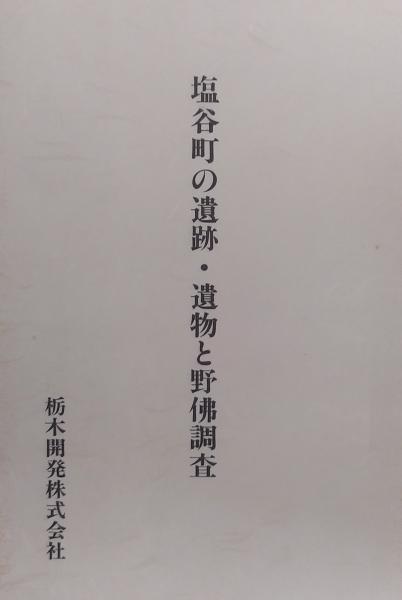 塩谷町の遺跡・遺物と野佛調査
栃木開発株式会社